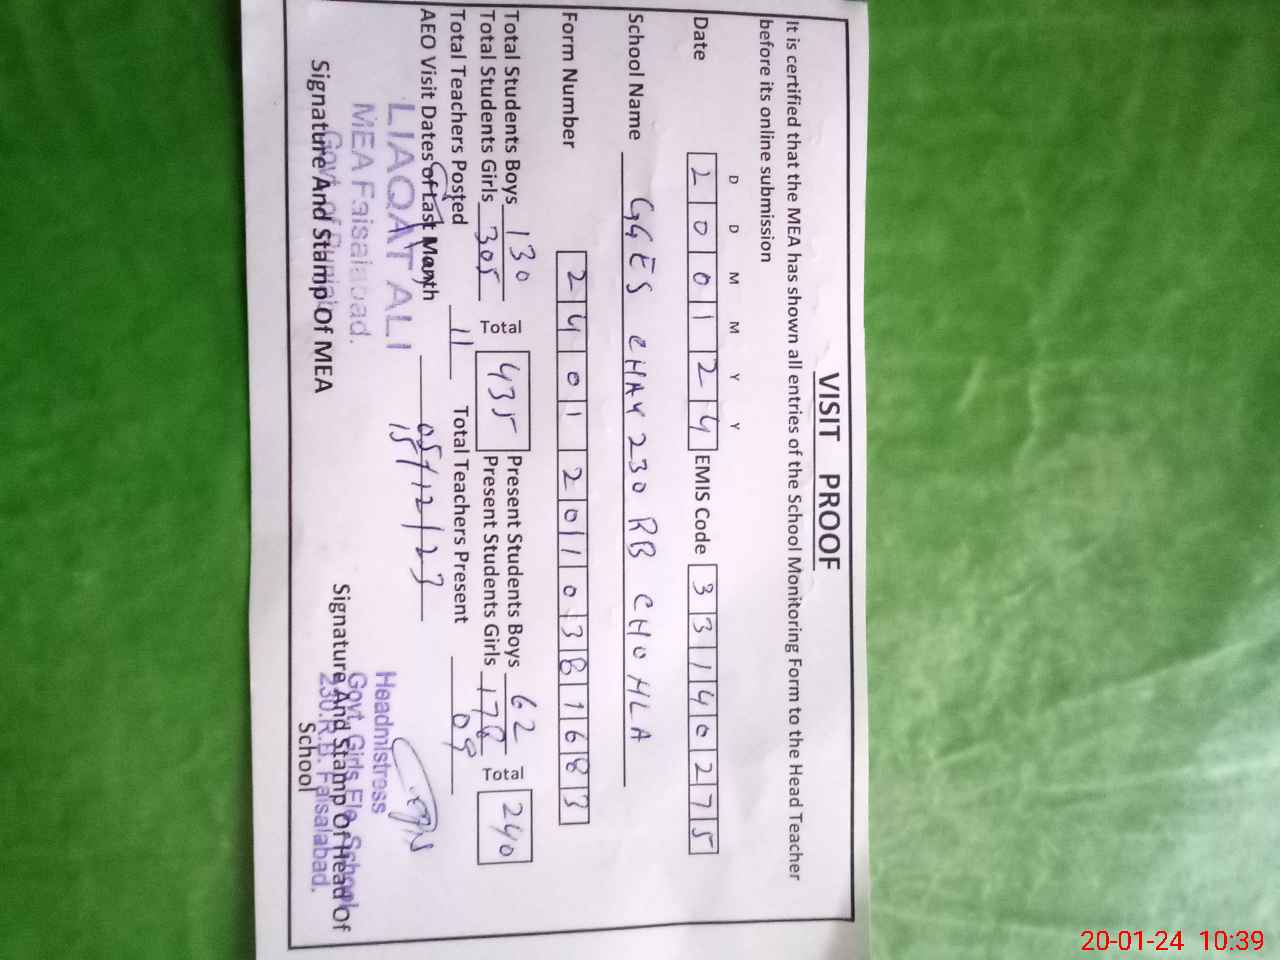 VISIT PROOF
It is certified that the MEA has shown all entries of the School Monitoring Form to the Head Teacher
before its online submission
D D M M Y Y
Date 2 0 0 1 2 4 EMIS Code 3 3 1 4 0 2 7 5
School Name GGES CHAK 230 RB CHOHLA
Form Number 2 4 0 1 2 0 1 0 3 8 1 6 8 3
Total Students Boys 130 Total 435 Present Students Boys 62 Total 240
Total Students Girls 305 Present Students Girls 178
Total Teachers Posted 11 Total Teachers Present 09
AEO Visit Dates of Last Month 05/12/23
15/
LIAQAT ALI
MEA Faisalabad.
Govt. of Punjab
Signature And Stamp Of MEA
Headmistress
Govt. Girls Ele. School
230.R.B. Faisalabad.
Signature And Stamp Of Head Of
School
20-01-24 10:39